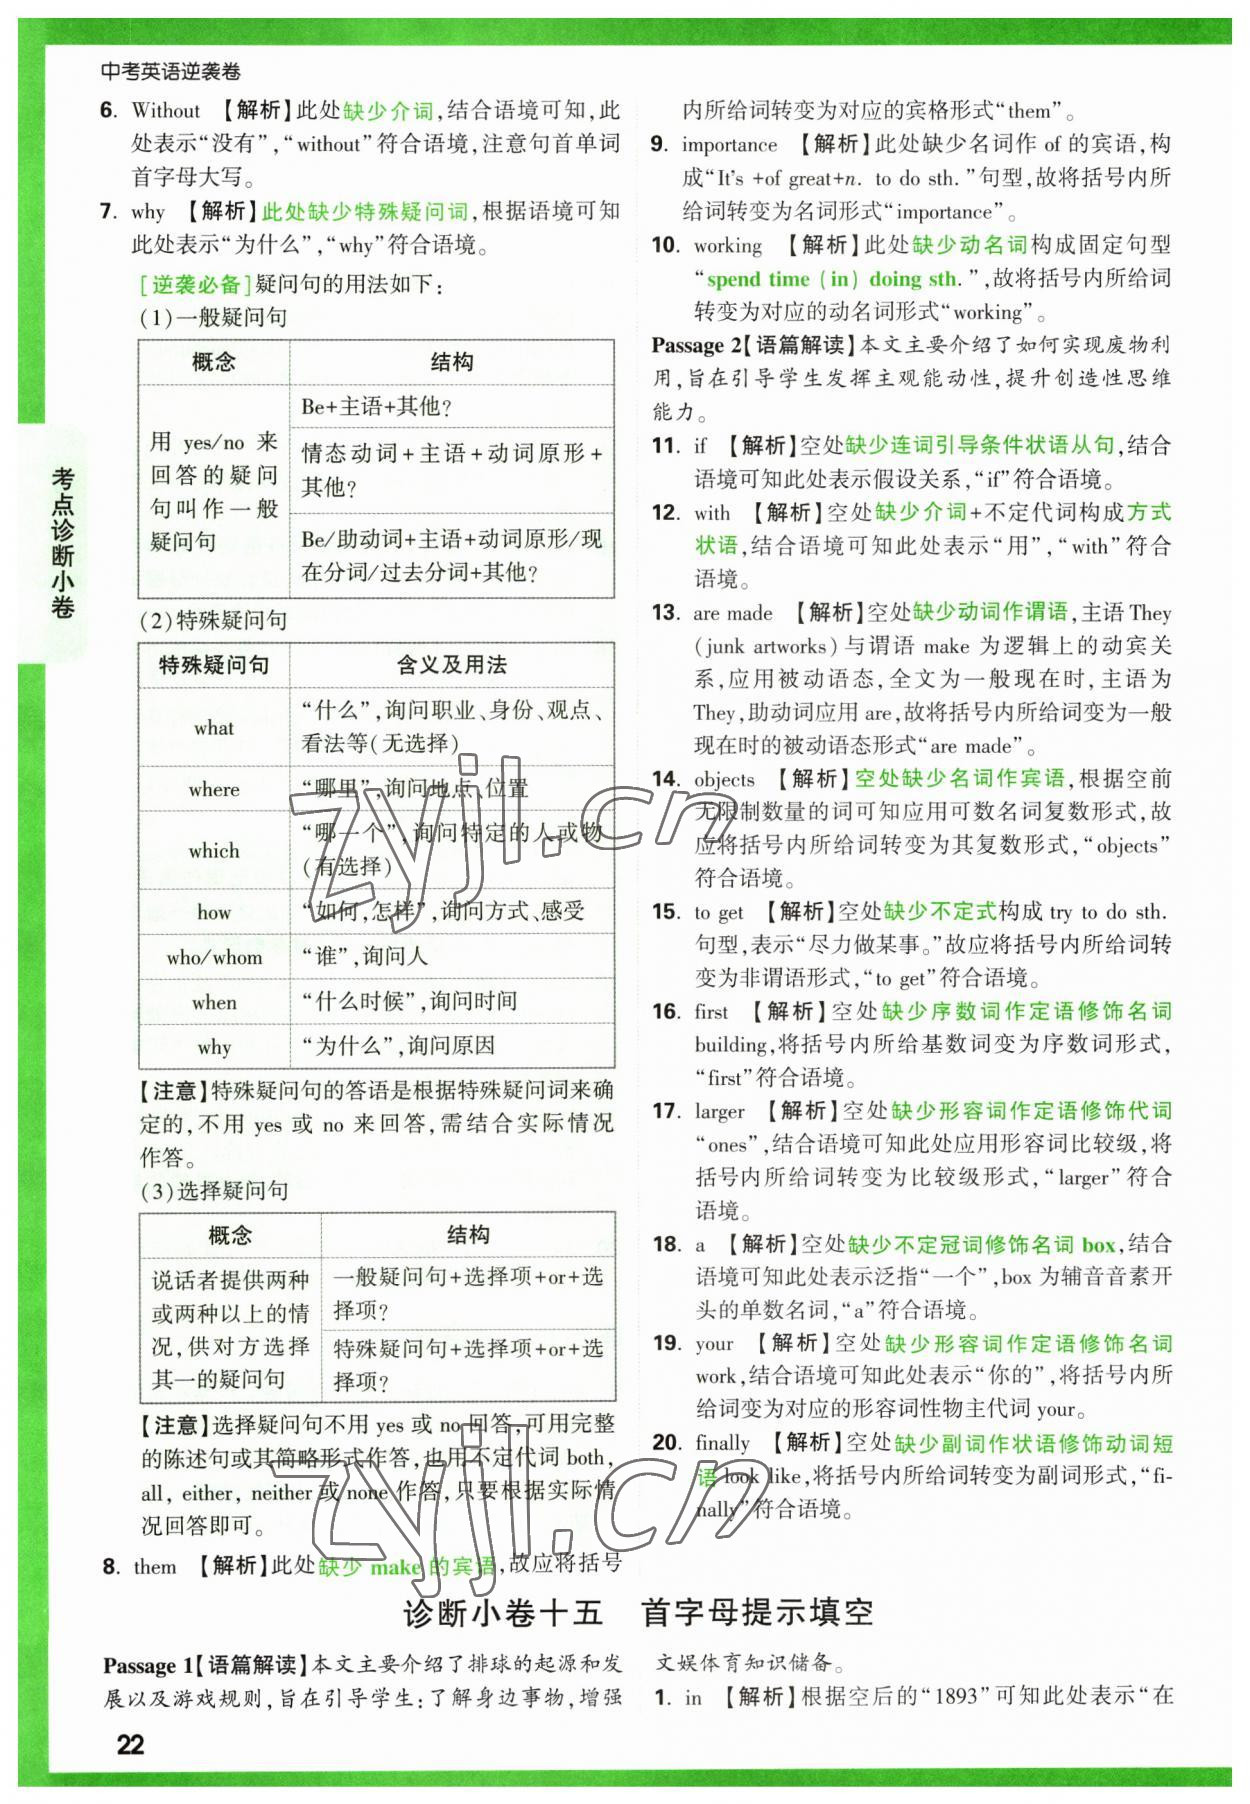 中考英语逆袭卷
6. Without 【解析】此处缺少介词,结合语境可知,此
处表示“没有”,“without”符合语境,注意句首单词
首字母大写。
7. why 【解析】此处缺少特殊疑问词,根据语境可知
此处表示“为什么”,“why”符合语境。
[逆袭必备]疑问句的用法如下:
(1)一般疑问句
概念 结构
用 yes/no 来
回答的疑问
句叫作一般
疑问句
Be+主语+其他?
情态动词+主语+动词原形+
其他?
Be/助动词+主语+动词原形/现
在分词/过去分词+其他?
(2)特殊疑问句
特殊疑问句 含义及用法
what “什么”,询问职业、身份、观点、
看法等(无选择)
where “哪里”,询问地点、位置
which “哪一个”,询问特定的人或物
(有选择)
how “如何,怎样”,询问方式、感受
who/whom “谁”,询问人
when “什么时候”,询问时间
why “为什么”,询问原因
【注意】特殊疑问句的答语是根据特殊疑问词来确
定的,不用 yes 或 no 来回答,需结合实际情况
作答。
(3)选择疑问句
概念 结构
说话者提供两种
或两种以上的情
况,供对方选择
其一的疑问句
一般疑问句+选择项+or+选
择项?
特殊疑问句+选择项+or+选
择项?
【注意】选择疑问句不用 yes 或 no 回答,可用完整
的陈述句或其简略形式作答,也用不定代词 both,
all, either, neither 或 none 作答,只要根据实际情
况回答即可。
8. them 【解析】此处缺少 make 的宾语,故应将括号
内所给词转变为对应的宾格形式“them”。
9. importance 【解析】此处缺少名词作 of 的宾语,构
成“It's +of great+n. to do sth.”句型,故将括号内所
给词转变为名词形式“importance”。
10. working 【解析】此处缺少动名词构成固定句型
“spend time (in) doing sth.”,故将括号内所给词
转变为对应的动名词形式“working”。
Passage 2【语篇解读】本文主要介绍了如何实现废物利
用,旨在引导学生发挥主观能动性,提升创造性思维
能力。
11. if 【解析】空处缺少连词引导条件状语从句,结合
语境可知此处表示假设关系,“if”符合语境。
12. with 【解析】空处缺少介词+不定代词构成方式
状语,结合语境可知此处表示“用”,“with”符合
语境。
13. are made 【解析】空处缺少动词作谓语,主语 They
(junk artworks)与谓语 make 为逻辑上的动宾关
系,应用被动语态,全文为一般现在时,主语为
They,助动词应用 are,故将括号内所给词变为一般
现在时的被动语态形式“are made”。
14. objects 【解析】空处缺少名词作宾语,根据空前
无限制数量的词可知应用可数名词复数形式,故
应将括号内所给词转变为其复数形式,“objects”
符合语境。
15. to get 【解析】空处缺少不定式构成 try to do sth.
句型,表示“尽力做某事。”故应将括号内所给词转
变为非谓语形式,“to get”符合语境。
16. first 【解析】空处缺少序数词作定语修饰名词
building,将括号内所给基数词变为序数词形式,
“first”符合语境。
17. larger 【解析】空处缺少形容词作定语修饰代词
“ones”,结合语境可知此处应用形容词比较级,将
括号内所给词转变为比较级形式,“larger”符合
语境。
18. a 【解析】空处缺少不定冠词修饰名词 box,结合
语境可知此处表示泛指“一个”,box 为辅音音素开
头的单数名词,“a”符合语境。
19. your 【解析】空处缺少形容词作定语修饰名词
work,结合语境可知此处表示“你的”,将括号内所
给词变为对应的形容词性物主代词 your。
20. finally 【解析】空处缺少副词作状语修饰动词短
语 look like,将括号内所给词转变为副词形式,“fi-
nally”符合语境。
考点诊断小卷
诊断小卷十五 首字母提示填空
Passage 1【语篇解读】本文主要介绍了排球的起源和发
展以及游戏规则,旨在引导学生:了解身边事物,增强
文娱体育知识储备。
1. in 【解析】根据空后的“1893”可知此处表示“在
22
zyjl.cn
zyjl.cn